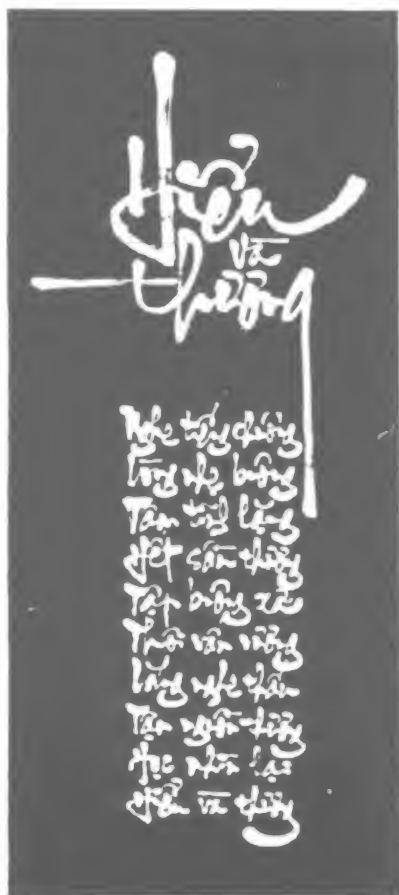 Hiểu
và
Thương
Nghe tiếng chuông
Lòng nhẹ buông
Tâm tĩnh lặng
Hết sầu thương
Tập buông xả
Thôi vấn vương
Lắng nghe
Tận nguồn
Học nhìn lại
Hiểu và thương